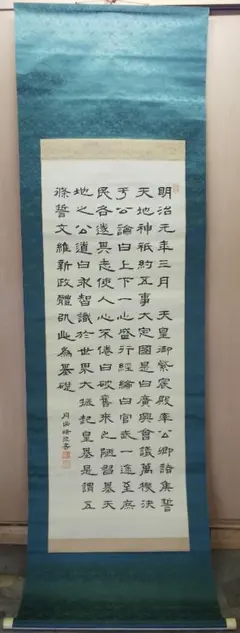 明治元年三月 天皇御紫宸殿率公卿諸誓
天地神祇約五事大定國是曰廣興會議萬機決
于公論曰上下一心盛行經綸曰官武一途至庶
民各遂其志使人心不倦曰破舊來之陋習基天
地之公道曰求智識於世界大振起皇基是謂五
條誓文維新政體此為基礎